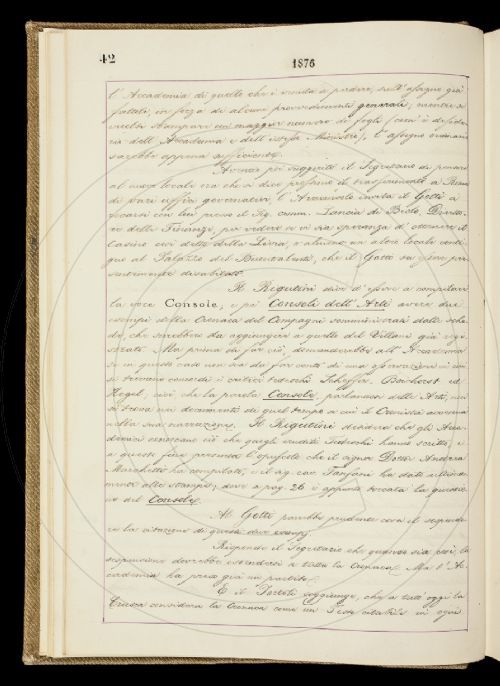 42
1876
l'Accademia di quelle che è venuta a perdere, sull'assegno già
fattole, in forza di alcuni provvedimenti generali; mentre se
vuolsi stampare un maggior numero di fogli (com'è deside
rio dell'Accademia e dell'istesso Ministro), l'assegno ordinario
sarebbe appena sufficiente.
Avendo poi suggerito il Segretario di pensare
al nuovo locale ora che si dice prossimo il trasferimento a Roma
di vari uffizi governativi, l'Arciconsolo invita il Gotti a
recarsi con lui presso il Sig. comm.
re delle Finanze, per vedere se vi sia speranza d'ottenere il
Casino così detto della Livia, o almeno un altro locale conti
guo al Palazzo del Buontalenti, che il Gotti sa esser pre
sentemente disabitato.
Il Rigutini dice d'essere a compilare
la voce Console; e pei Consoli dell'Arti avere due
esempi della Cronaca del Compagni somministrati dalle sche
de, che sarebbero da aggiungere a quello del Villani già regi
strato. Ma prima di far ciò, domanderebbe all'Accademia
se in questo caso non sia da far conto di una osservazione in cui
si trovano concordi i critici tedeschi Scheffer, ed
Hegel; cioè che la parola Consoli, parlandosi delle Arti, non
si trova nei documenti di quel tempo a cui il Cronista accenna
nella sua narrazione. Il Rigutini desidera che gli Acca-
demici conoscano ciò che quegli eruditi Tedeschi hanno scritto; e
a questo fine presenta l'opuscolo che il signor Dottor Andrea
Marchetti ha compilato, e il sig. cav. Tanfani ha dato ultima
mente alle stampe; dove a pag. 26 è appunto toccata la quistio
ne del Console.
Al Gotti parrebbe prudente cosa il sospende
re la citazione di questi due esempj.
Risponde il Segretario che quando sia così, la
sospensione dovrebbe estendersi a tutta la Cronaca. Ma l'Ac
cademia ha preso già un partito.
E il Tortoli soggiunge, che a tutt'oggi la
Crusca considera la Cronaca come un Testo citabile in ogni